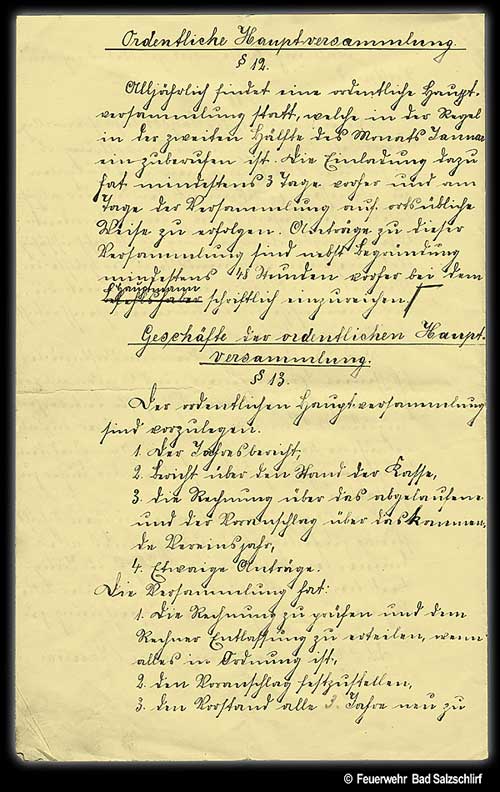 Ordentliche Hauptversammlung.
§ 12.
Alljährlich findet eine ordentliche Haupt-
versammlung statt, welche in der Regel
in der zweiten Hälfte des Monats Januar
einzuberufen ist. Die Einladung dazu
hat mindestens 3 Tage vorher und am
Tage der Versammlung auf ortsübliche
Weise zu erfolgen. Anträge zu dieser
Versammlung sind nebst Begründung
mindestens 48 Stunden vorher bei dem
Hauptmann
schriftlich einzureichen.
Geschäfte der ordentlichen Haupt-
versammlung.
§ 13.
Der ordentlichen Hauptversammlung
sind vorzulegen.
1. Der Jahresbericht,
2. Bericht über den Stand der Kasse,
3. die Rechnung über das abgelaufene
und der Voranschlag über das kommen-
de Vereinsjahr,
4. Etwaige Anträge.
Die Versammlung hat:
1. Die Rechnung zu prüfen und dem
Rechner Entlastung zu erteilen, wenn
alles in Ordnung ist,
2. den Voranschlag festzustellen,
3. den Vorstand alle 3. Jahre neu zu
© Feuerwehr Bad Salzschlirf